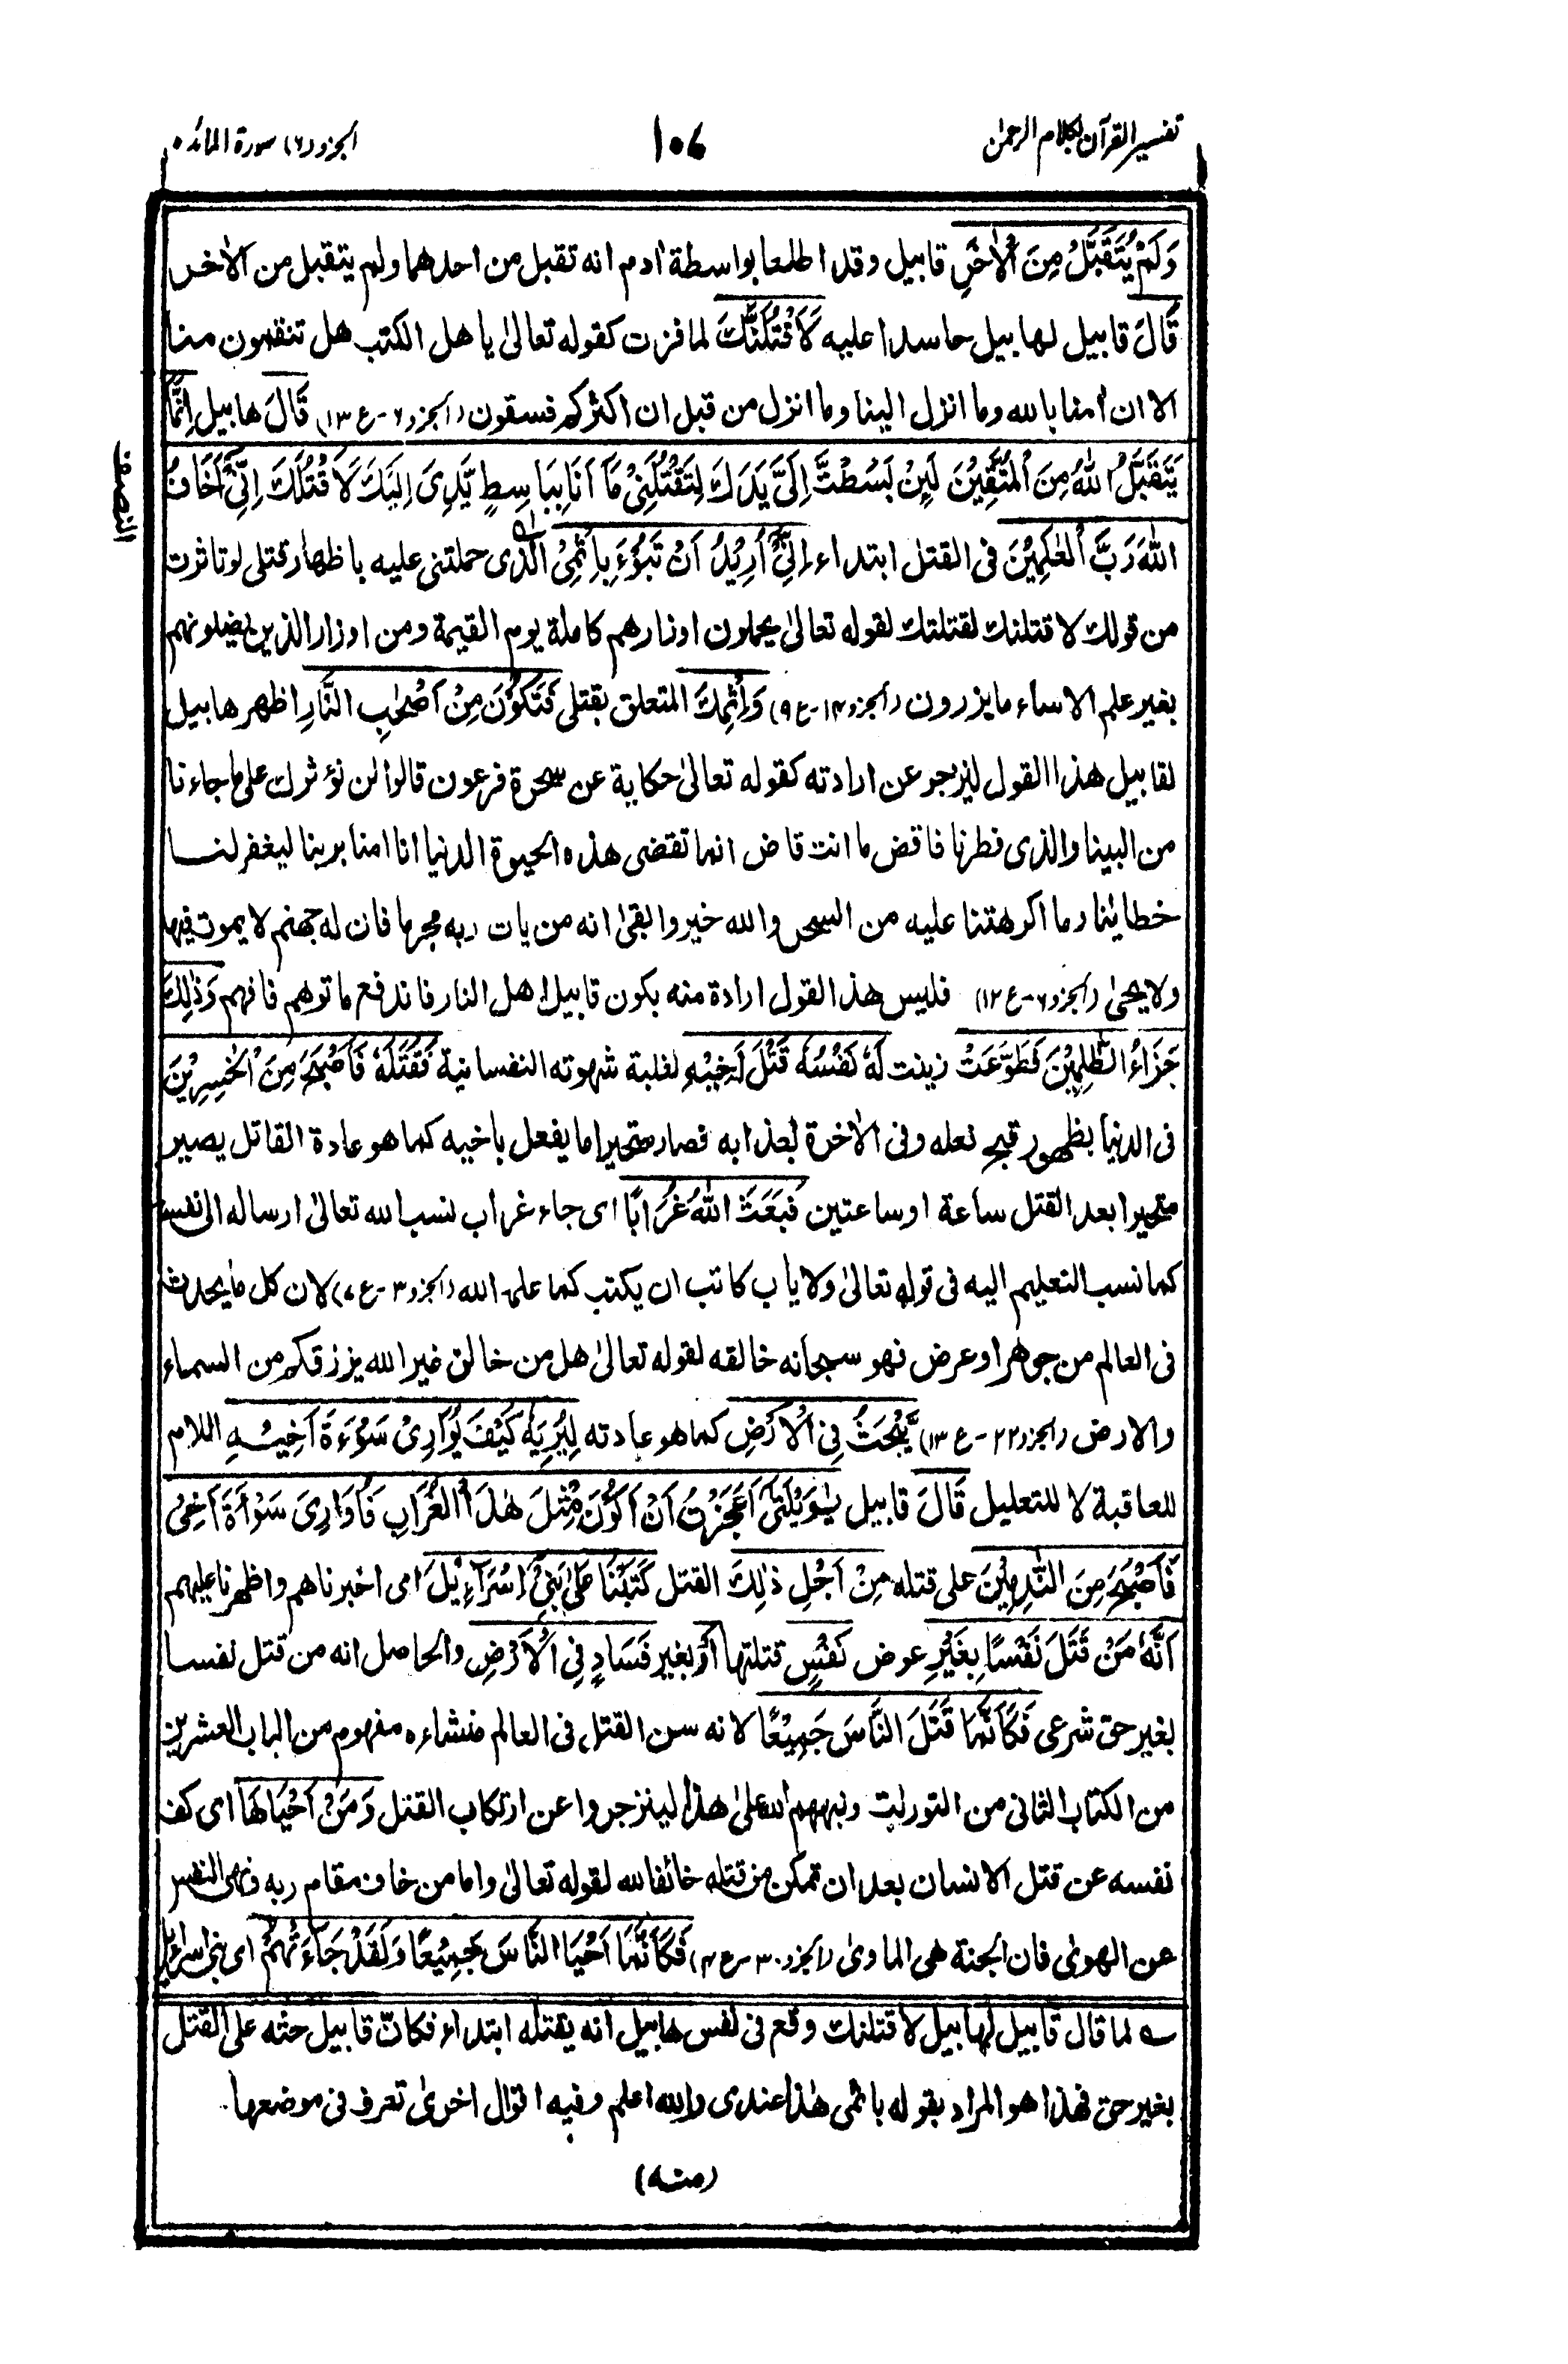 تفسير القرآن بكلام الرحمن
١٠٦
الجزو(٦) سورة المائده
وَلَمْ يُتَقَبَّلْ مِنَ الْاٰخَرِ قابيل وقد اطلعا بواسطة اٰدم انه تقبل من احدهما ولم يتقبل من الاٰخر
قَالَ قابيل لهابيل حاسدا عليه لَاَقْتُلَنَّكَ لما فزت كقوله تعالىٰ يا هل الكتٰب هل تنقمون منا
الا ان اٰمنا بالله وما انزل الينا وما انزل من قبل ان اكثركم فسقون (الجزو ٦-ع ١٣) قَالَ هابيل اِنَّمَا
يَتَقَبَّلُ اللّٰهُ مِنَ الْمُتَّقِيْنَ لَئِنْ بَسَطْتَّ اِلَيَّ يَدَكَ لِتَقْتُلَنِيْ مَآ اَنَا بِبَاسِطٍ يَّدِيَ اِلَيْكَ لِاَقْتُلَكَ اِنِّيْٓ اَخَافُ
النصف
اللّٰهَ رَبَّ الْعٰلَمِيْنَ فى القتل ابتداء اِنِّيْٓ اُرِيْدُ اَنْ تَبُوْٓءَ بِاِثْمِيْ الذى حملتنى عليه باظهار قتلى لو تاثرت
من قولك لاقتلنك لقتلتك لقوله تعالىٰ يحملون اوزارهم كاملة يوم القيٰمة ومن اوزار الذين يضلونهم
بغير علم الا ساء ما يزرون (الجزو ١٤-ع ٩) وَاِثْمِكَ المتعلق بقتلى فَتَكُوْنَ مِنْ اَصْحٰبِ النَّارِ اظهر هابيل
لقابيل هذا القول لينزجر عن ارادته كقوله تعالىٰ حكاية عن سحرة فرعون قالوا لن نؤثرك على ما جاءنا
من البينا والذى فطرنا فاقض ما انت قاض انما تقضى هذه الحيوة الدنيا انا امنا بربنا ليغفر لنا
خطايٰنا وما اكرهتنا عليه من السحر والله خير وابقىٰ انه من يات ربه مجرما فان له جهنم لا يموت فيها
ولا يحيىٰ (الجزو ٦-ع ١٢) فليس هذ القول ارادة منه بكون قابيل اهل النار فاندفع ما توهم فافهم وَذٰلِكَ
جَزَاءُ الظّٰلِمِيْنَ فَطَوَّعَتْ زينت لَهٗ نَفْسُهٗ قَتْلَ اَخِيْهِ لغلبة شهوته النفسانية فَقَتَلَهٗ فَاَصْبَحَ مِنَ الْخٰسِرِيْنَ
فى الدنيا بظهور قبح فعله وفى الاٰخرة لعذابه فصار متحيرا ما يفعل باخيه كما هو عادة القاتل يصير
متحيرا بعد القتل ساعة او ساعتين فَبَعَثَ اللّٰهُ غُرَابًا اى جاء غراب نسب الله تعالىٰ ارساله الى نفسه
كما نسب التعليم اليه فى قوله تعالىٰ ولا ياب كاتب ان يكتب كما علمه الله (الجزو ٣-ع ٧) لان كل ما يحدث
فى العالم من جوهر او عرض فهو سبحانه خالقه لقوله تعالىٰ هل من خالق غير الله يرزقكم من السماء
والارض (الجزو ٢٢-ع ١٣) يَّبْحَثُ فِي الْاَرْضِ كما هو عادته لِيُرِيَهٗ كَيْفَ يُوَارِيْ سَوْءَةَ اَخِيْهِ اللام
للعاقبة لا للتعليل قَالَ قابيل يٰوَيْلَتٰٓى اَعَجَزْتُ اَنْ اَكُوْنَ مِثْلَ هٰذَا الْغُرَابِ فَاُوَارِيَ سَوْاَةَ اَخِيْ
فَاَصْبَحَ مِنَ النّٰدِمِيْنَ على قتله مِنْ اَجْلِ ذٰلِكَ القتل كَتَبْنَا عَلٰى بَنِيْٓ اِسْرَآءِيْلَ اى اخبرناهم واظهرنا عليهم
اَنَّهٗ مَنْ قَتَلَ نَفْسًا بِغَيْرِ عوض نَفْسٍ قتلتها اَوْ بغير فَسَادٍ فِي الْاَرْضِ والحاصل انه من قتل نفسا
بغير حق شرعى فَكَاَنَّمَا قَتَلَ النَّاسَ جَمِيْعًا لانه سن القتل فى العالم منشاءه مفهوم من الباب العشرين
من الكتاب الثانى من التورٰىت ونبههم الله علىٰ هذا لينزجروا عن ارتكاب القتل وَمَنْ اَحْيَاهَا اى كف
نفسه عن قتل الانسان بعد ان تمكن من قتله خائفا لله لقوله تعالىٰ واما من خاف مقام ربه ونهى النفس
عن الهوىٰ فان الجنة هى الماوىٰ (الجزو ٣٠-ع ٤) فَكَاَنَّمَا اَحْيَا النَّاسَ جَمِيْعًا وَلَقَدْ جَاءَتْهُمْ اى بنى اسراءيل
لما قال قابيل لهابيل لاقتلنك وقع فى نفس هابيل انه يقتله ابتداء فكانّ قابيل حثه على القتل
بغير حق فهٰذا هو المراد بقوله باثمى هٰذا عندى والله اعلم وفيه اقوال اخرىٰ تعرف فى موضعها
(منه)